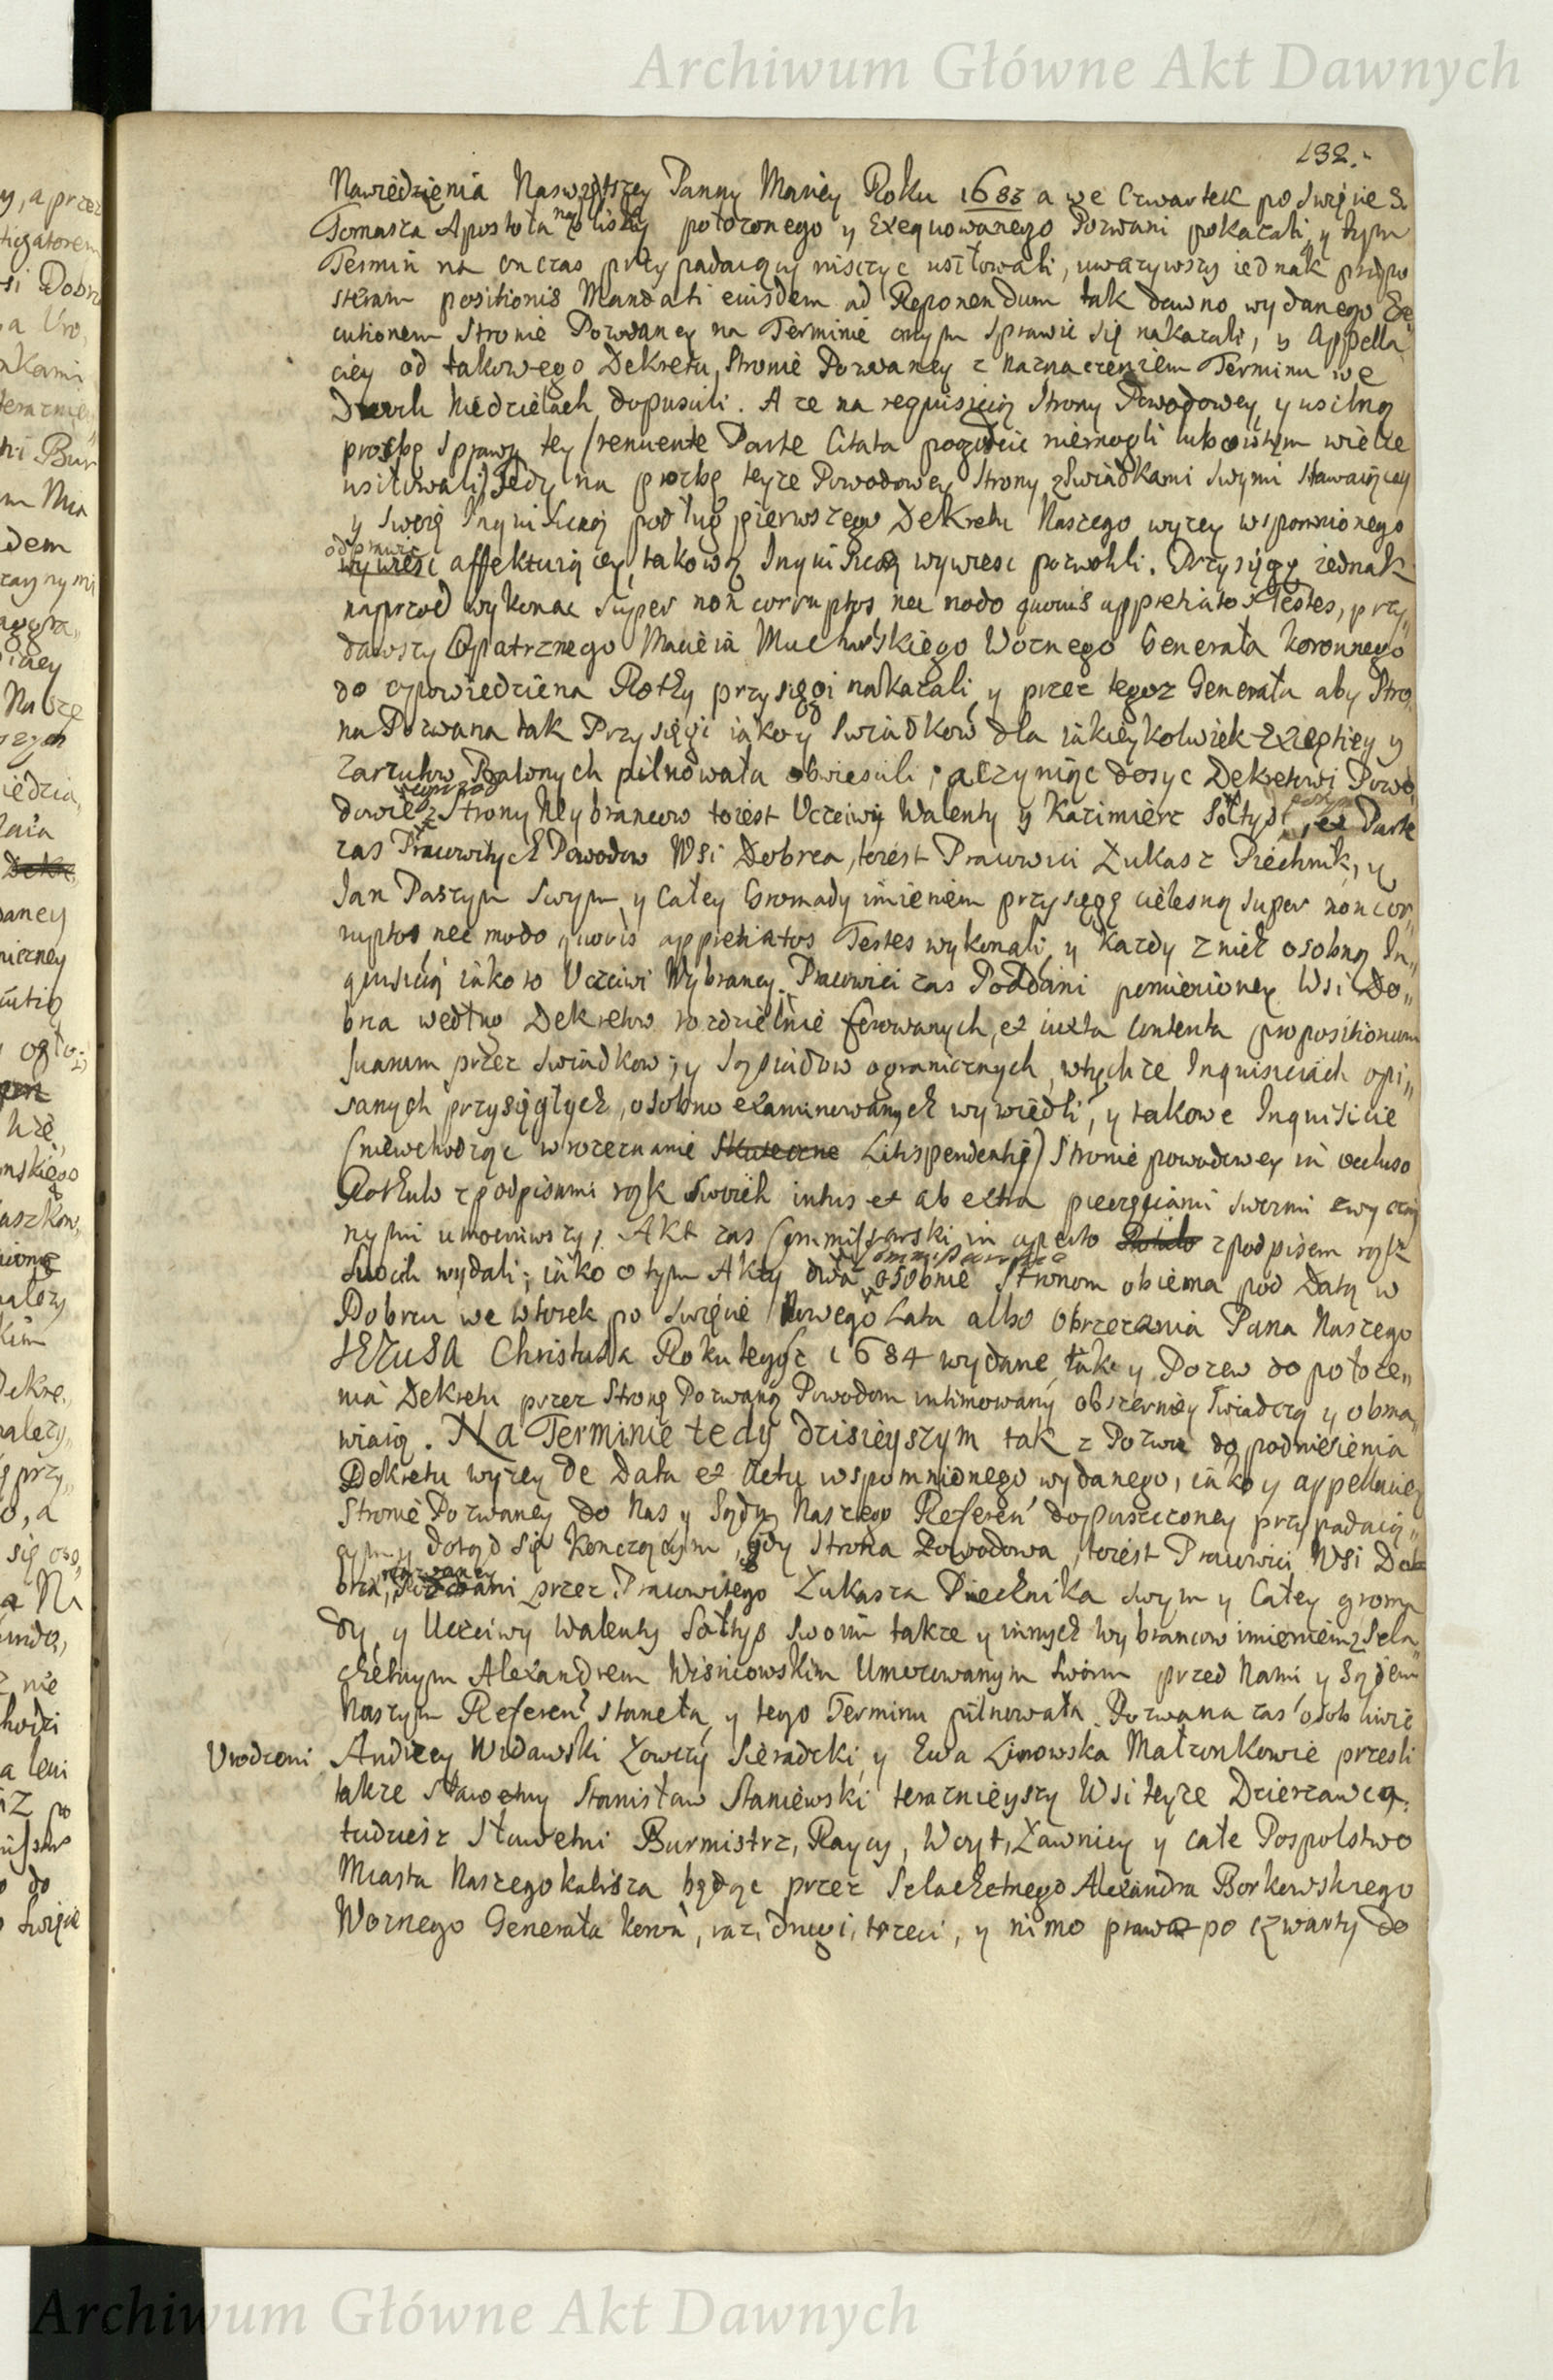 Archiwum Główne Akt Dawnych
132.
Nawiedzienia Naswzętszey Panny Mariey Roku 1683 a we Czwartek po Swięcie S.
Tomasza Apostoła położonego y Exequowanego Pozwani pokazali, y tym
Termin na on czas przypadaiący nisczyc usiłowali, uwazywszy iednak
positionis Mandati eiusdem ad Reponendum tak dawno wydanego Exe„
cutionem Stronie Pozwaney na Terminie onym sprawic się nakazali, y Appella„
ciey od takowego Dekretu, Stronie Pozwaney z naznaczeniem Terminu we
Dwuch Niedzielach dopuscili. A ze na requisicią Strony Powodowey y usilną
prosbę Sprawy tey (renuente Parte Citata pogodzic niemogli lubo o to wielce
usiłowali) Tedy na prozbę teyze Powodowey Strony z Swiadkami Swymi Stawaiącey
y Swoię Inquisicią podług pierwszego Dekretu Naszego wyzey wspomnionego
odprawic
wywiesc affektuiącey, takową Inquisicią wywiesc pozwolili. Przysięgę iednak
naprzod wykonac super non corruptos nec modo quovis appretiatos Testes, przy„
dawszy Opatrznego Macieia Muchowskiego Woznego Generała Koronnego
do opowiedzenia Rothy przysięgi nakazali, y przez tegoz Generała aby Stro„
na Pozwana tak Przysięgi iako y Swiadkow dla iakieykolwiek Exceptiey y
zarzutow pilnowała obwiescili; a czyniąc dosyc Dekretowi Powo„
dowie z Strony Wybrancow toiest Uczciwy Walenty y Kazimierz Sołtysi, ex Parte
zas Pracowitych Powodow Wsi Dobrca, toiest Pracowici Łukasz Piechnik, y
Jan Paszyn Swym y Całey Gromady imieniem przysięgę cielesną super non cor„
ruptos nec modo quovis appretiatos Testes wykonali, y kazdy z nich osobną In„
quisicią iako to Uczciwi Wybrancy, Pracowici zas Poddani pomienioney Wsi Do„
brca według Dekretow rozdzielnie ferowanych, et iuxta Contenta propositionum
suarum przez Swiadkow, y Sąsiadow ogranicznych, w tychze Inquisiciach opi„
sanych przysięgłych, osobno examinowanych wywiedli, y takowe Inquisicie
(niewchodząc w rozeznanie Skuteczne Litispendentię) Stronie powodowey in occluso
Rothulo z podpisami rąk Swoich intus et ab extra pieczęciami swemi zwyczay
nymi umocniwszy, Akt zas Commissarski in aperto Rotulo z podpisem rąk
Swoich wydali; iako o tym Akty dwa osobnie Stronom obiema pod Datą w
Dobrcu we Wtorek po Swięcie Nowego Lata albo Obrzezania Pana Naszego
JEZUSA Christusa Roku tegoz 1684 wydane, tak y Pozew do położe„
nia Dekretu przez Stronę Pozwaną Powodom intimowany obszerniey swiadczą y obma„
wiaią. Na Terminie tedy dzisieyszym tak z Pozwu do podniesienia
Dekretu wyzey de Data et Actu wspomnionego wydanego, iako y appellaciey
Stronie Pozwaney do Nas y Sądu Naszego Referen dopuszczoney przypadaią„
cym y dotąd się kończącym, gdy Strona Powodowa, toiest Pracowici Wsi Do„
brca, przez Pracowitego Łukasza Piechnika swym y Całey groma
dy, y Uczciwy Walenty Sołtys Swoim takze y innych Wybrancow imieniem z Szla„
chetnym Alexandrem Wisniowskim Umocowanym Swoim przed Nami y Sądem
Naszym Referen stanęła, y tego Terminu pilnowała. Pozwana zas osobliwie
Urodzeni Andrzey Widawski Łowczy Sieradzki, y Ewa Lipowska Małzonkowie przesli
takze Sławetny Stanisław Staniewski teraznieyszy Wsi teyze Dzierzawca,
tudziesz Sławetni Burmistrz, Raycy, Woyt, Ławnicy y całe Pospolstwo
Miasta Naszego Kalisza będąc przez Szlachetnego Alexandra Borkowskiego
Woznego Generała Koron, raz, drugi, trzeci, y nimo prawo po czwarty do
Archiwum Główne Akt Dawnych